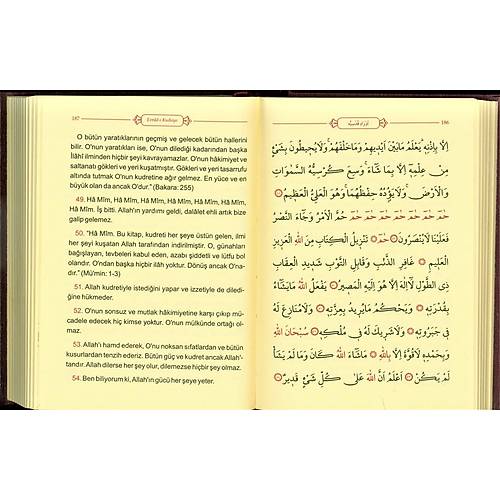 187
Evrâd-ı Kudsiye
O bütün yaratıklarının geçmiş ve gelecek bütün hallerini
bilir. O'nun yaratıkları ise, O'nun dilediği kadarından başka
İlâhî ilminden hiçbir şeyi kavrayamazlar. O'nun hâkimiyet ve
saltanatı gökleri ve yeri kuşatmıştır. Gökleri ve yeri tasarrufu
altında tutmak O'nun kudretine ağır gelmez. En yüce ve en
büyük olan da ancak O'dur." (Bakara: 255)
49. Hâ Mîm, Hâ Mîm, Hâ Mîm, Hâ Mîm, Hâ Mîm, Hâ Mîm,
Hâ Mîm. İş bitti. Allah'ın yardımı geldi, dalâlet ehli artık bize
galip gelemez.
50. "Hâ Mîm. Bu kitap, kudreti her şeye üstün gelen, ilmi
her şeyi kuşatan Allah tarafından indirilmiştir. O, günahları
bağışlayan, tevbeleri kabul eden, azabı şiddetli ve lütfu bol
olandır. O'ndan başka hiçbir ilâh yoktur. Dönüş ancak O'na-
dır." (Mü'min: 1-3)
51. Allah kudretiyle istediğini yapar ve izzetiyle de diledi-
ğine hükmeder.
52. O'nun sonsuz ve mutlak hâkimiyetine karşı çıkıp mü-
cadele edecek hiç kimse yoktur. O'nun mülkünde ortağı ol-
maz.
53. Allah'ı hamd ederek, O'nu noksan sıfatlardan ve bütün
kusurlardan tenzih ederiz. Bütün güç ve kudret ancak Allah'-
tandır. Allah dilerse her şey olur, dilemezse hiçbir şey olmaz.
54. Ben biliyorum ki, Allah'ın gücü her şeye yeter.
اَوْرَادِ قُدْسِيَّه
186
اِلَّا بِاِذْنِهِ يَعْلَمُ مَابَيْنَ اَيْدِيهِمْ وَمَاخَلْفَهُمْ وَلَايُحِيطُونَ بِشَىْءٍ
مِنْ عِلْمِهِ اِلَّا بِمَا شَاءَ وَسِعَ كُرْسِيُّهُ السَّمٰوَاتِ
وَالْاَرْضَ وَلَايَؤُدُهُ حِفْظُهُمَا وَهُوَ الْعَلِىُّ الْعَظِيمُ
حٰمٓ حٰمٓ حٰمٓ حٰمٓ حٰمٓ حٰمٓ حٰمٓ حُمَّ الْاَمْرُ وَجَاءَ النَّصْرُ
فَعَلَيْنَا لَايُنْصَرُونَ حٰمٓ تَنْزِيلُ الْكِتَابِ مِنَ اللهِ الْعَزِيزِ
الْعَلِيمِ غَافِرِ الذَّنْبِ وَقَابِلِ التَّوْبِ شَدِيدِ الْعِقَابِ
ذِى الطَّوْلِ لَااِلٰهَ اِلَّا هُوَ اِلَيْهِ الْمَصِيرُ يَفْعَلُ اللهُ مَايَشَاءُ
بِقُدْرَتِهِ وَيَحْكُمُ مَايُرِيدُ بِعِزَّتِهِ وَلَامُنَازِعَ لَهُ
فِى جَبَرُوتِهِ وَلَاشَرِيكَ لَهُ فِى مُلْكِهِ سُبْحَانَ اللهِ
وَبِحَمْدِهِ لَاقُوَّةَ اِلَّا بِاللهِ مَاشَاءَ اللهُ كَانَ وَمَا لَمْ يَشَأْ
لَمْ يَكُنْ اَعْلَمُ اَنَّ اللهَ عَلٰى كُلِّ شَىْءٍ قَدِيرٌ